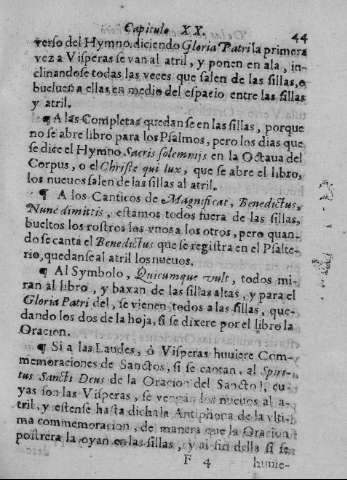 Capitulo XX. 44
verso del Hymno, diciendo Gloria Patri la primera
vez a Visperas se van al atril, y ponen en ala, in-
clinandose todas las veces que salen de las sillas, o
buelven a ellas, en medio del espacio entre las sillas
y atril.
¶ A las Completas quedanse en las sillas, porque
no se abre libro para los Psalmos, pero los dias que
se dice el Hymno Sacris solemnijs en la Octaua del
Corpus, o el Christe qui lux, que se abre el libro,
los nueuos salen de las sillas al atril.
¶ A los Canticos de Magnificat, Benedictus,
Nunc dimittis, estamos todos fuera de las sillas,
bueltos los rostros los vnos a los otros, pero quan-
do se canta el Benedictus que se registra en el Psalte-
rio, quedanse al atril los nueuos.
¶ Al Symbolo, Quicumque vult, todos mi-
ran al libro, y baxan de las sillas altas, y para el
Gloria Patri del, se vienen todos a las sillas, que-
dando los dos de la hoja, si se dixere por el libro la
Oracion.
¶ Si a las Laudes, ò Visperas huuiere Com-
memoraciones de Sanctos, si se cantan, al Spiri-
tus Sancti Deus de la Oracion del Sancto, cu-
yas son las Visperas, se vengan los nueuos al a-
tril, y estense hasta dicha la Antiphona de la vlti-
ma commemoracion, de manera que la Oracion
postrera la oyan en las sillas, y al fin della si se
F 4 huuie-